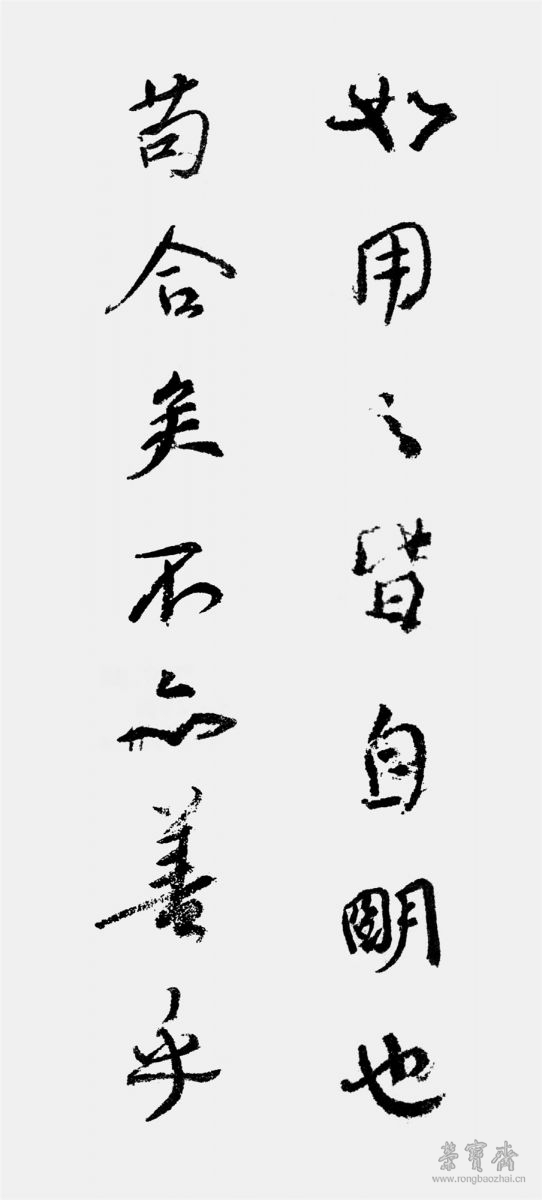 如用之皆自朙也
苟合矣不亦善乎
荣寶斋
www.rongbaozhai.cn